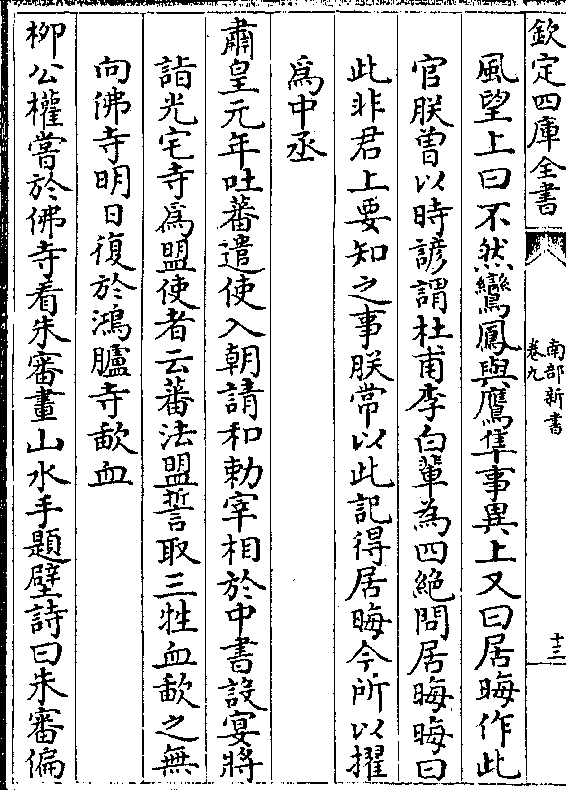 欽定四庫全書
南部新書
卷九
十三
風望上曰不然鸞鳳與鷹隼事異上又曰居晦作此
官朕曽以時諺謂杜甫李白輩為四絶問居晦晦曰
此非君上要知之事朕常以此記得居晦今所以擢
爲中丞
肅皇元年吐蕃遣使入朝請和勅宰相於中書設宴將
詣光宅寺爲盟使者云蕃法盟誓取三牲血歃之無
向佛寺明日復於鴻臚寺歃血
柳公權嘗於佛寺看朱審畫山水手題壁詩曰朱審偏